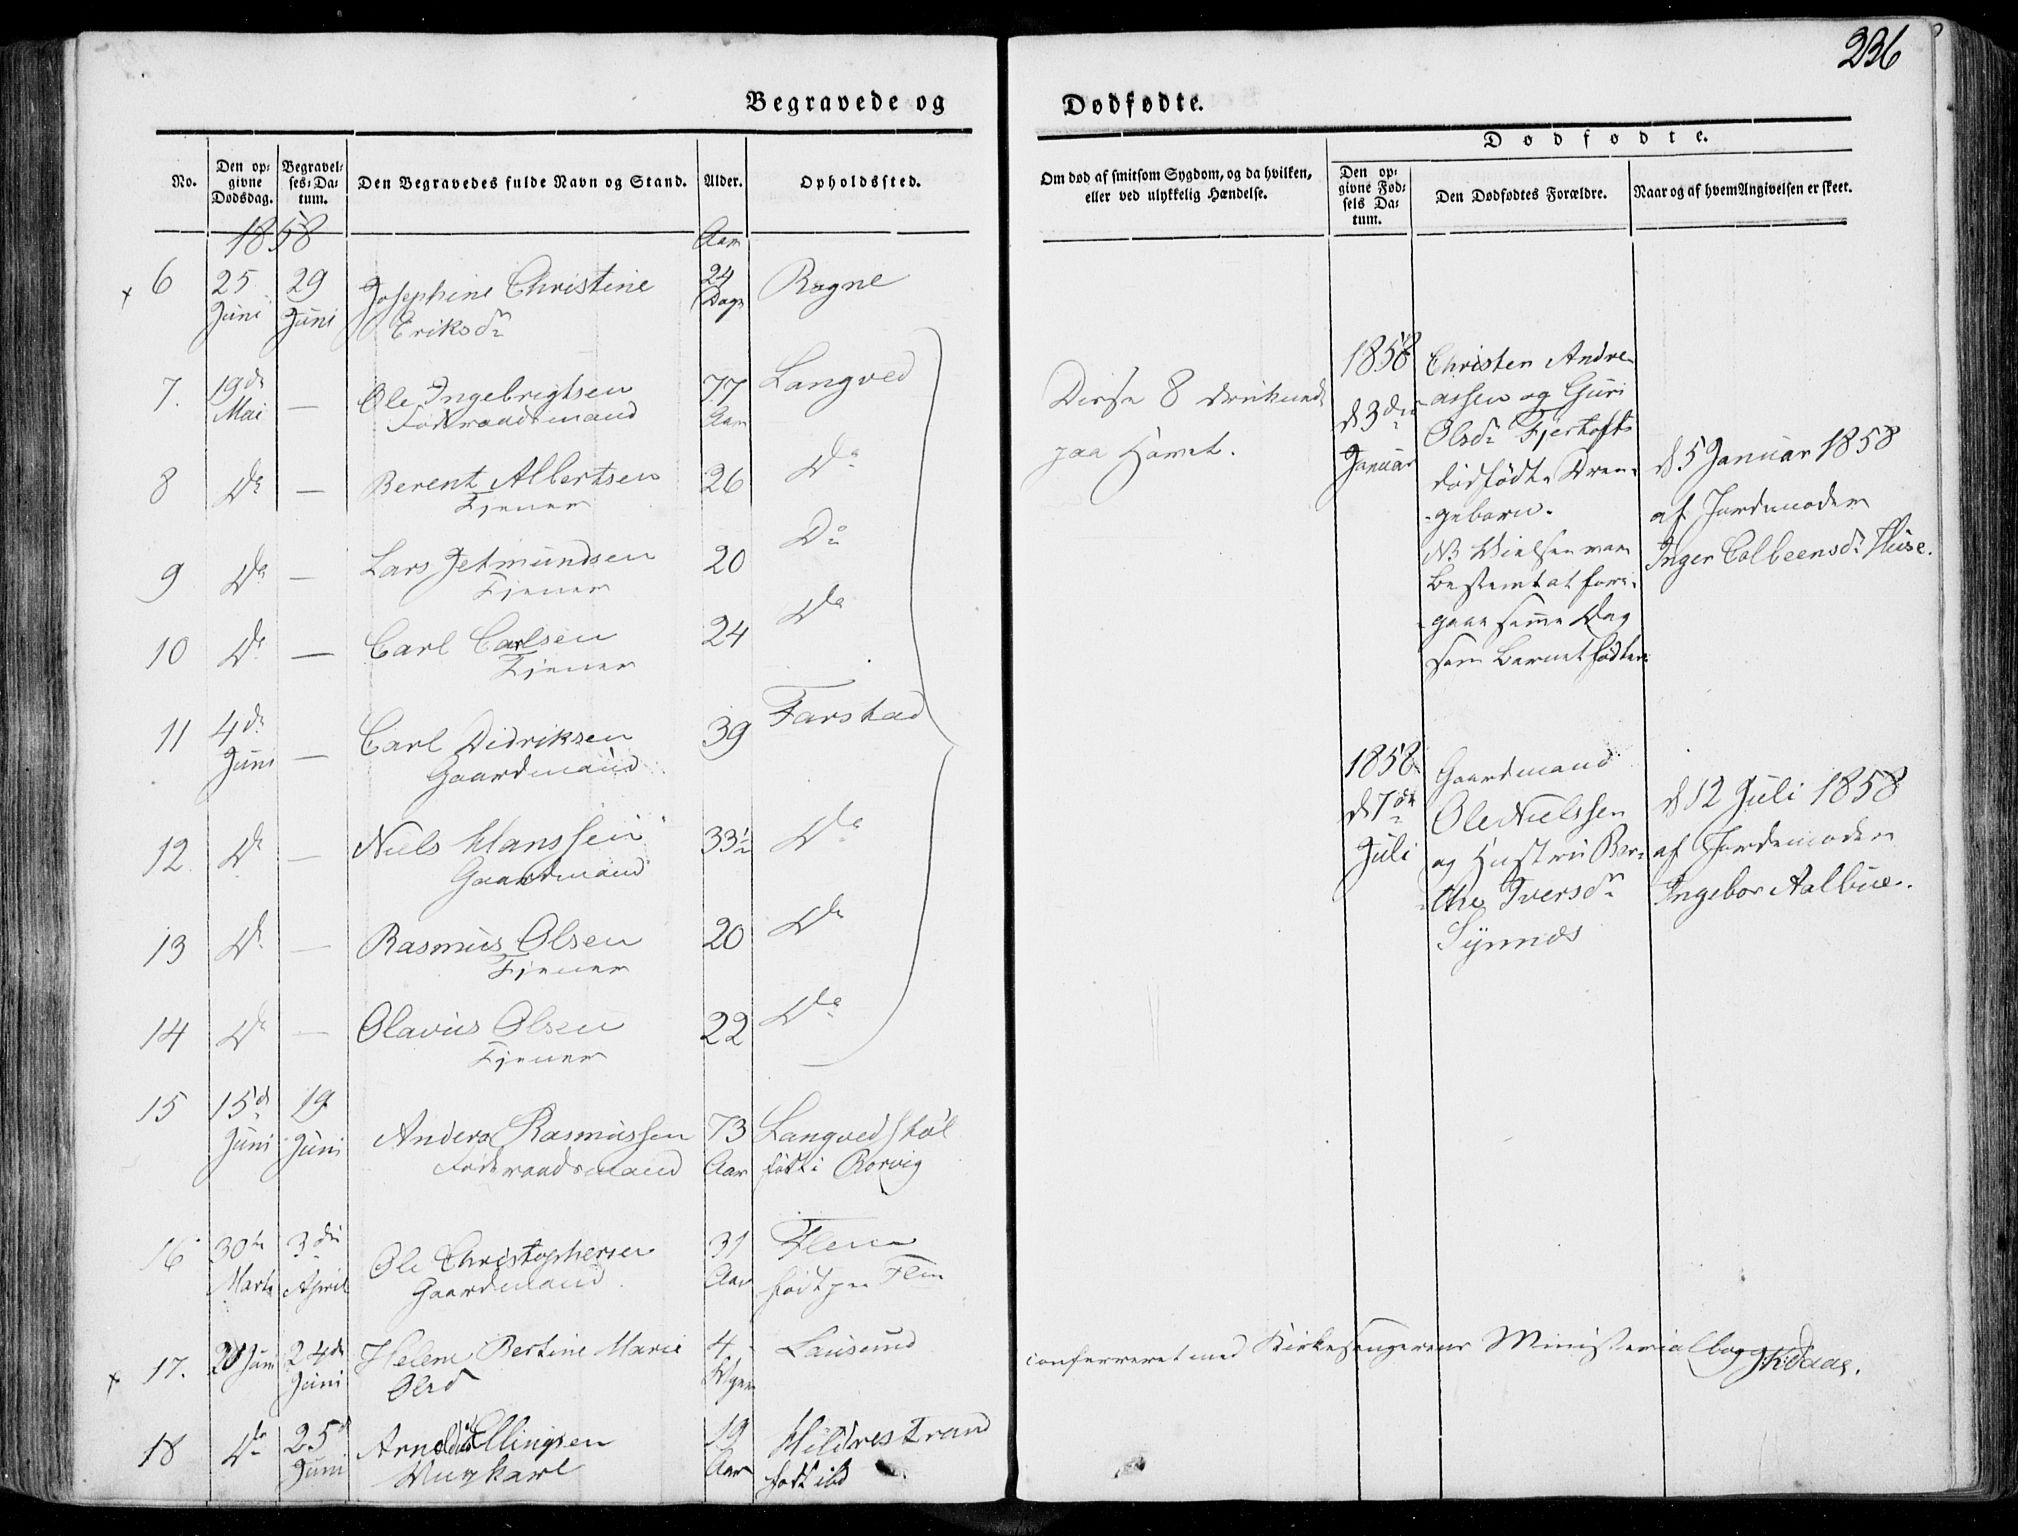 236
Begravede og Dødfødte.
No.
Den opgivne Dødsdag.
Begravelses-Datum.
Den Begravedes fulde Navn og Stand.
Alder.
Opholdssted.
Om død af smitsom Sygdom, og da hvilken,
eller ved ulykkelig Hændelse.
Dødfødte.
Den opgivne Fødsels Datum.
Den Dødfødtes Forældre.
Naar og af hvem Angivelsen er skeet.
1858
Aar
6 25 Juni 29 Juni Josephine Christine Eriksdr 24 Dage Rogne
7. 19de Mai — Ole Ingebrigtsen Føderaadsmand 77 Aar Langved
8 Do — Berent Albertsen Tjener 26 Do
9 Do — Lars Jetmundsen Tjener 20 Do
10 Do — Carl Carlsen Tjener 24 Do
11 4de Juni — Carl Didriksen Gaardmand 39 Farstad
12. Do — Niels Hanssen Gaardmand 33½ Do
13 Do — Rasmus Olsen Tjener 20 Do
14 Do — Olavus Olsen Tjener 22 Do
15 15de Juni 19 Juni Anders Rasmussen Føderaadsmand 73 Aar Langvedstøl født i Rorvig
16 30te Marts 3die April Ole Christophersen Gaardmand 31 Aar Flem født paa Flem
17. 20 Juni 24de Juni Helene Bertine Marie Olsd 4 Lausund
18 Do 25de Juni Arnoldus Ellingsen Ungkarl 19 Aar Hildrestrand født ibd
Disse 8 druknede
paa Havet.
1858
d 3die
Januar
Christen Andre-
assen og Guri
Olsdr Fjertofts
dødfødte Dren-
gebarn.
NB Vielsen var
bestemt at fore-
gaae samme Dag
som Barnet fødtes
d 5 Januar 1858
af Jordemoder
Inger Colbeensdr Huse.
1858
d 7de
Juli
Gaardmand
Ole Nielssen
og Hustru Ber-
the Iversdr
Synnæs
d 12 Juli 1858
af Jordemoder
Ingebor Aalbue.
conferreret med Kirkesangerens Ministerialbog
Daae.